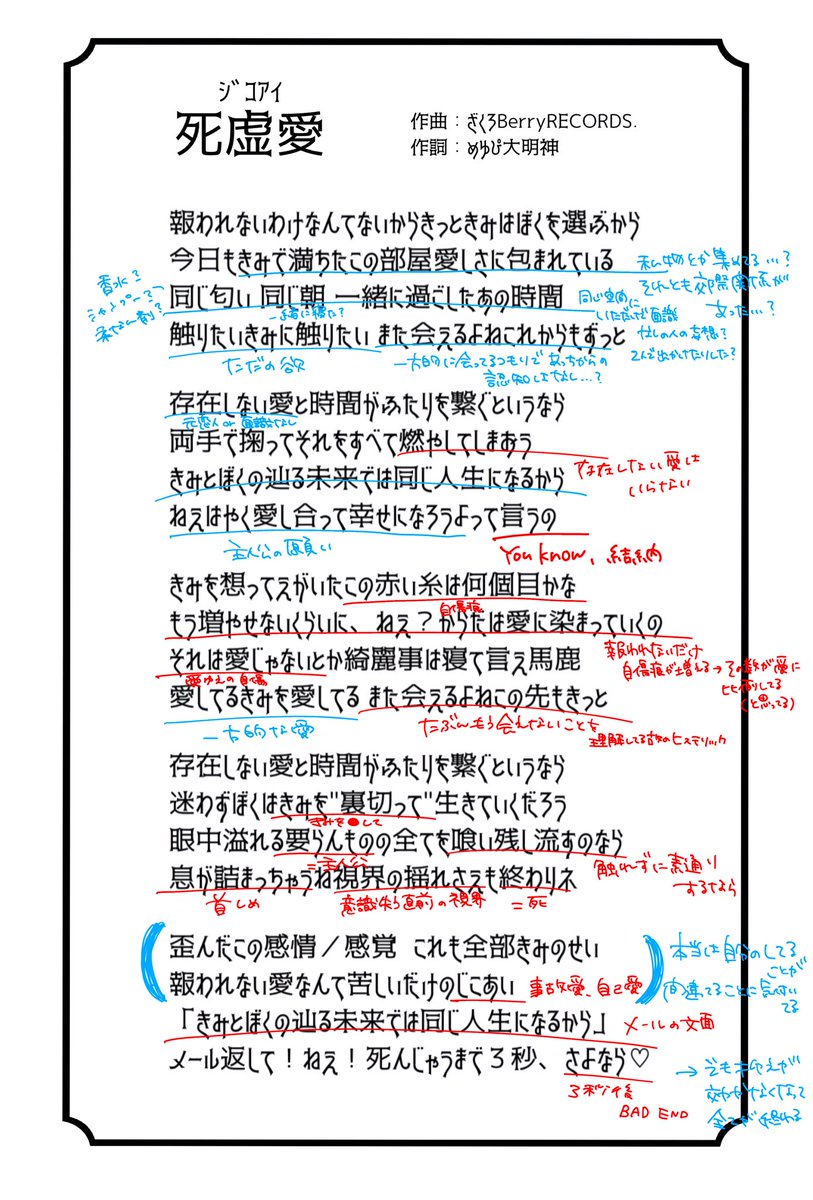 ジコアイ
死虚愛
作曲：ざくろBerryRECORDS.
作詞：めゆぴ大明神
報われないわけなんてないからきっときみはぼくを選ぶから
今日もきみで満ちたこの部屋愛しさに包まれている
私物とか集めてる…？
それとも交際関係が
あった…？
香水？
シャンプー？
柔なん剤？
同じ匂い 同じ朝 一緒に過ごしたあの時間
一緒に寝た？
同じ空間に
いただけで面識
なしの人の妄想？
2人で出かけたりした？
触りたいきみに触りたい また会えるよねこれからもずっと
ただの欲
一方的に会ってるつもりであっちからの
認知はなし…？
存在しない愛と時間がふたりを繋ぐというなら
元恋人or面識なし
両手で掬ってそれをすべて燃やしてしまおう
存在しない愛は
いらない
きみとぼくの辿る未来では同じ人生になるから
ねえはやく愛し合って幸せになろうよって言うの
主人公の願い
You know, 結納
きみを想ってえがいたこの赤い糸は何個目かな
自傷痕
もう増やせないくらいに、ねぇ？からだは愛に染まっていくの
報われないだけ
自傷痕が増える→その数が愛に
比例してる
(と思ってる)
それは愛じゃないとか綺麗事は寝て言え馬鹿
愛ゆえの自傷
愛してるきみを愛してる また会えるよねこの先もきっと
一方的な愛
たぶんもう会えないことを
理解してる故のヒステリック
存在しない愛と時間がふたりを繋ぐというなら
迷わずぼくはきみを"裏切って"生きていくだろう
きみを●して
眼中溢れる要らんものの全てを喰い残し流すのなら
=主人公
触れずに素通り
するなら
息が詰まっちゃうね視界の揺れさえも終わりネ
首しめ
意識失う直前の視界
=死
歪んだこの感情／感覚 これも全部きみのせい
報われない愛なんて苦しいだけのじこあい
事故愛、自己愛
本当は自分のしてる
ことが
間違ってることに気付い
てる
「きみとぼくの辿る未来では同じ人生になるから」
メールの文面
メール返して！ねぇ！死んじゃうまで３秒、さよなら♡
3秒後
BAD END
効かなくなって
全てが終わる